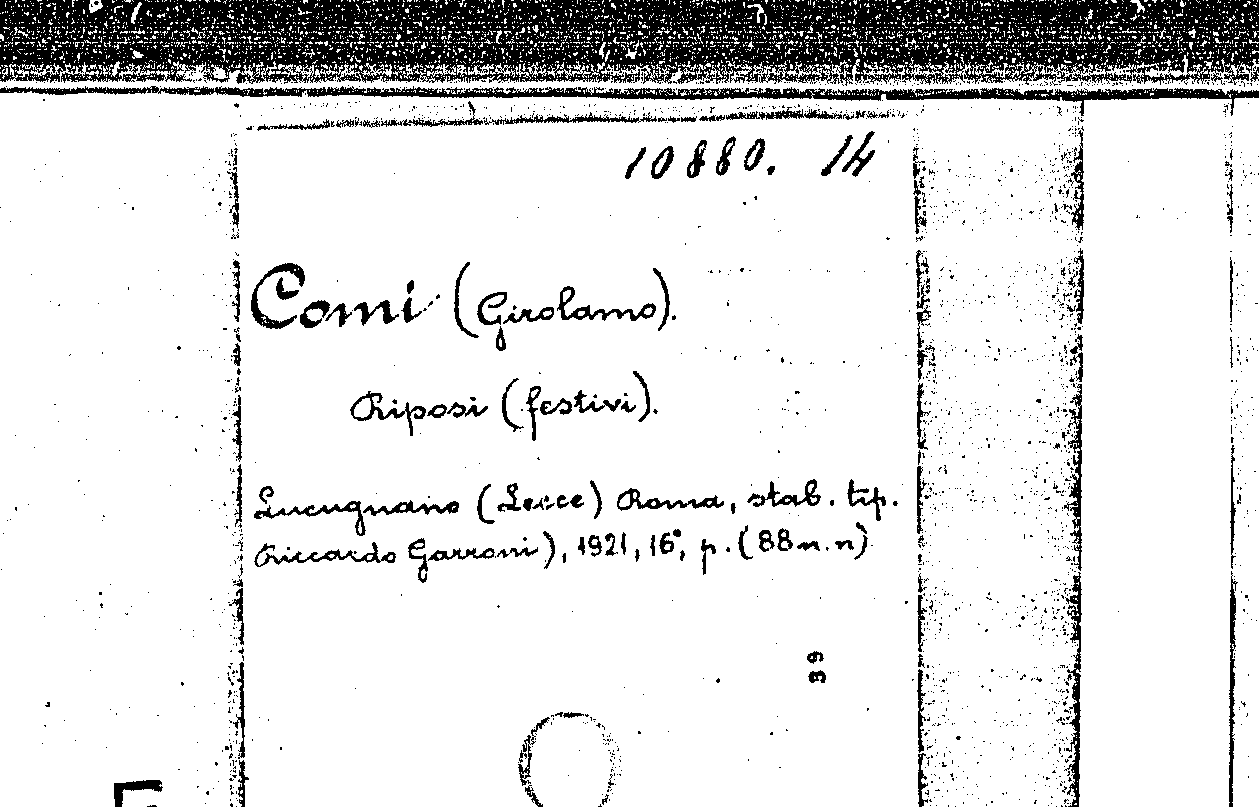 10880. 14
Comi (Girolamo).
Riposi (festivi).
Lucugnano (Lecce) Roma, stab. tip.
Riccardo Garroni), 1921, 16°, p. (88 n. n)
39